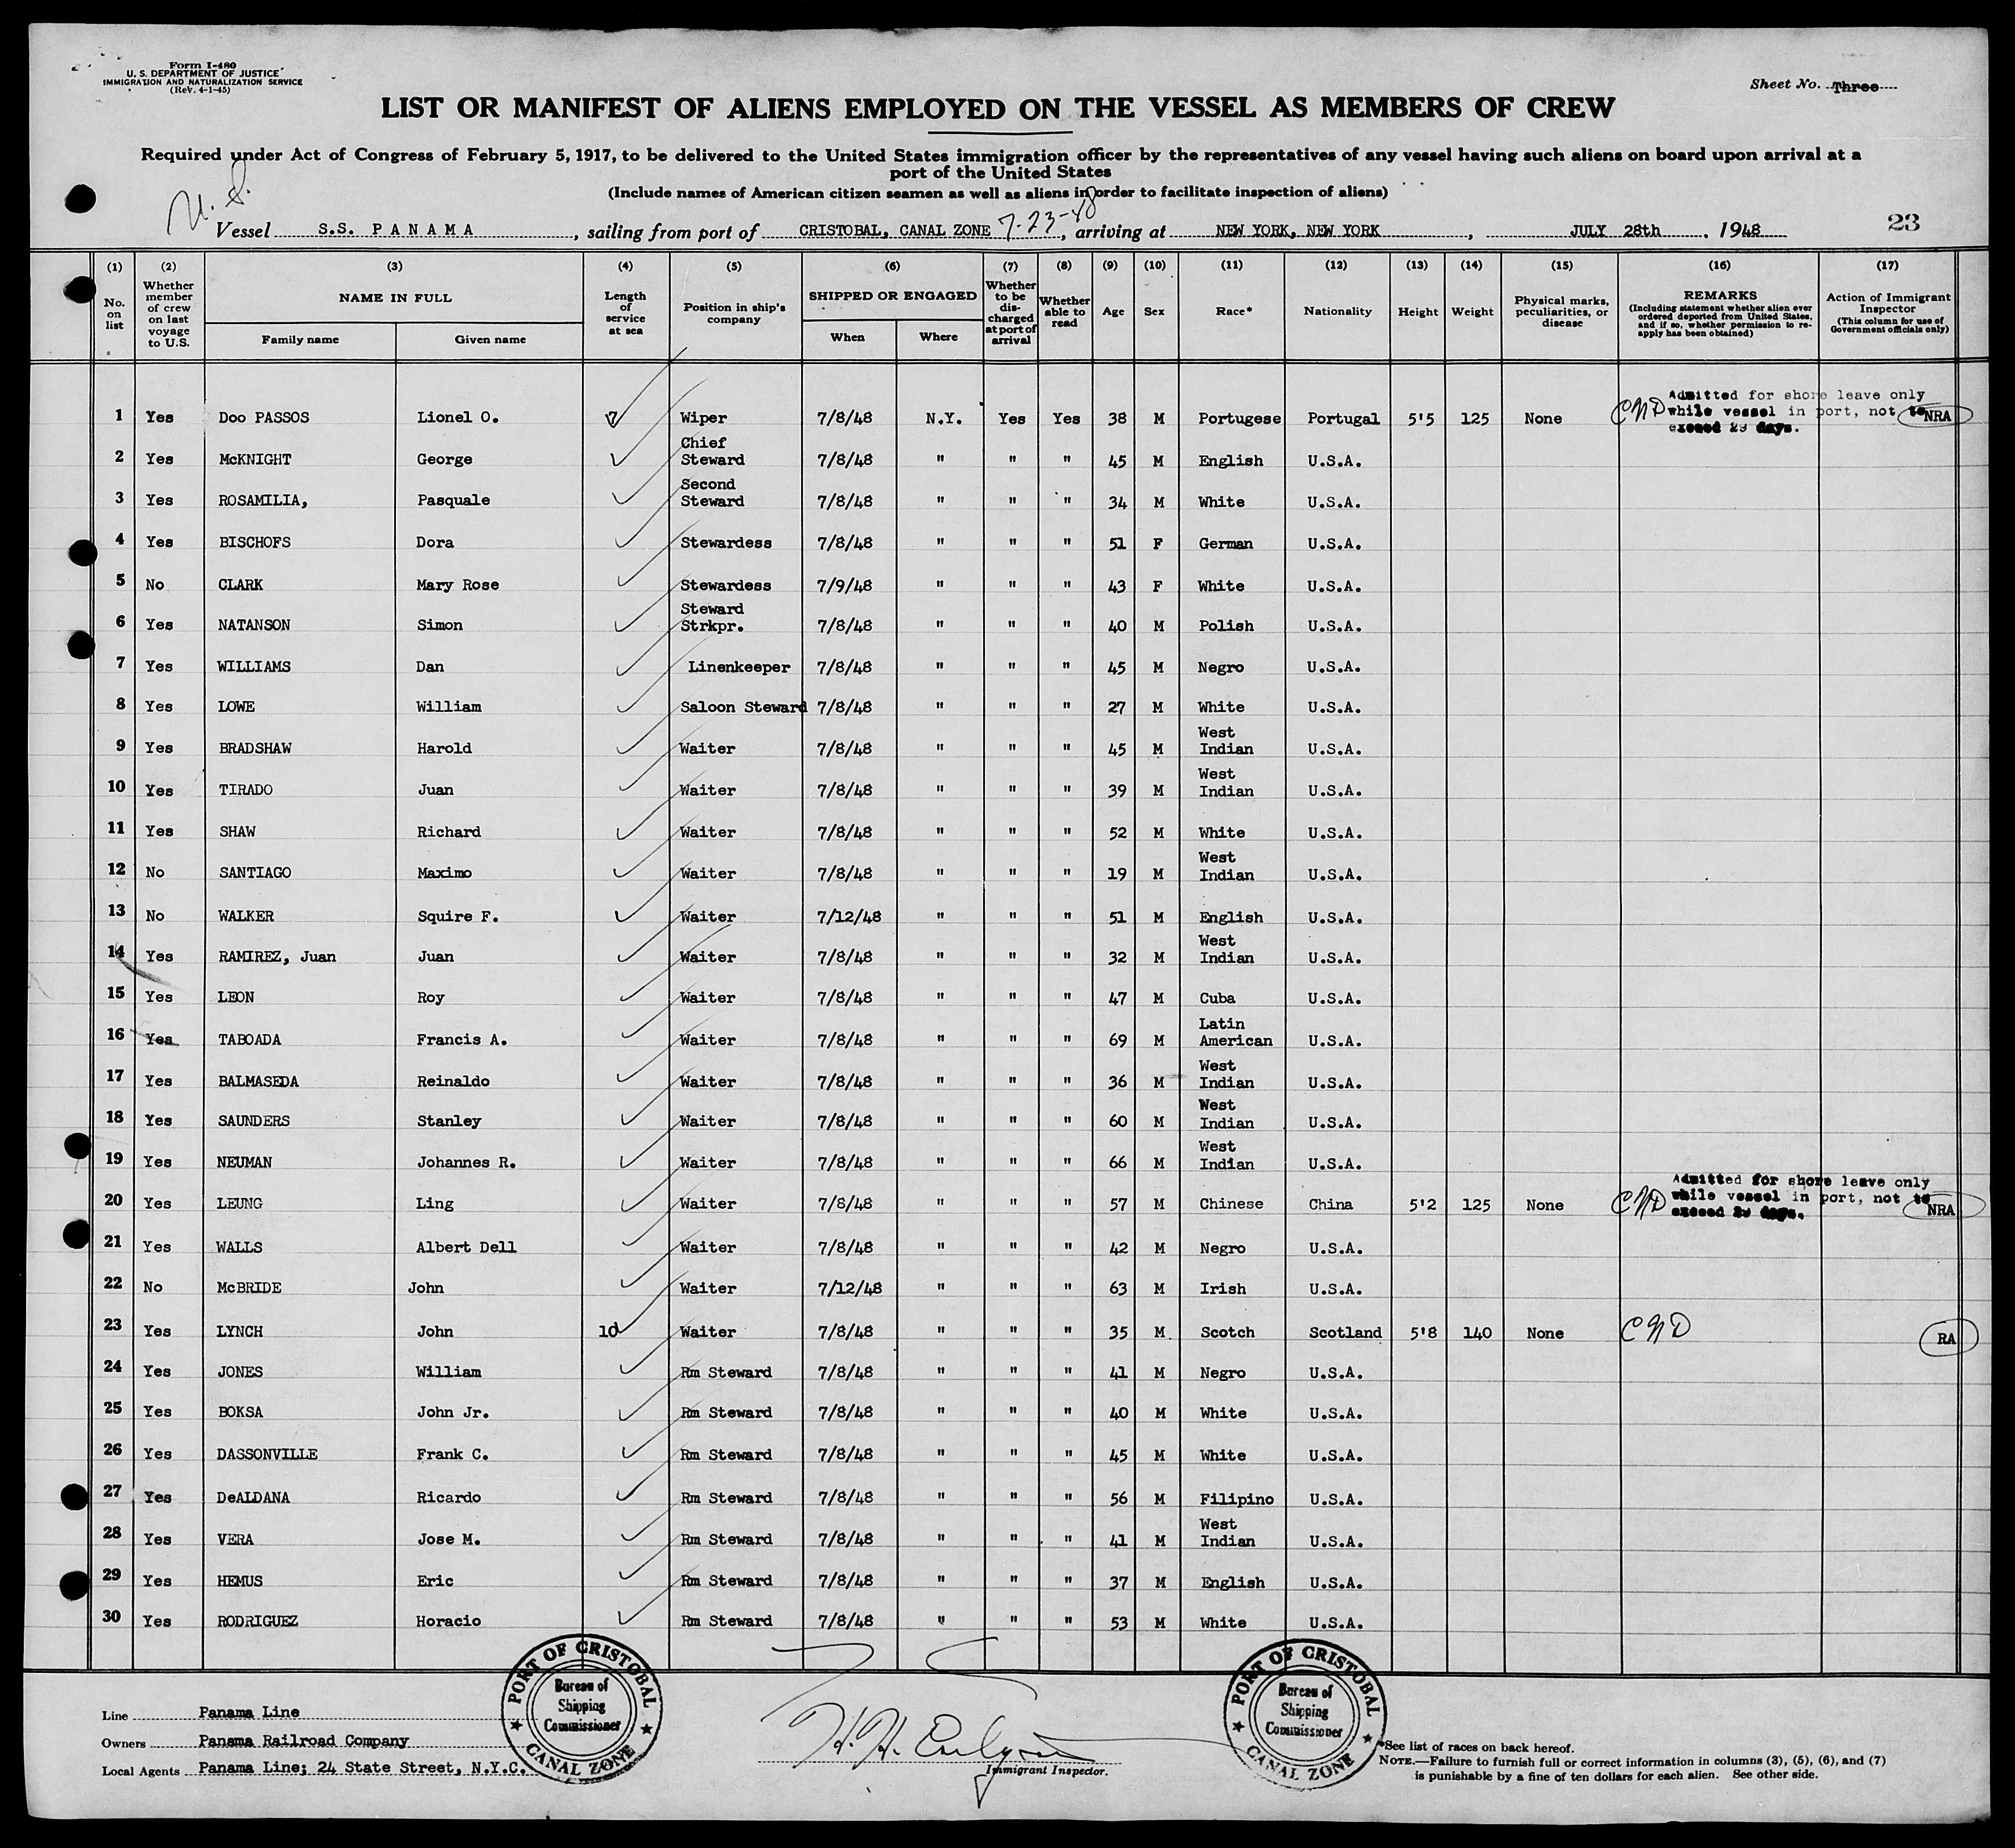 Form I-480
U. S. DEPARTMENT OF JUSTICE
IMMIGRATION AND NATURALIZATION SERVICE
(Rev. 4-1-45)
Sheet No. Three
LIST OR MANIFEST OF ALIENS EMPLOYED ON THE VESSEL AS MEMBERS OF CREW
Required under Act of Congress of February 5, 1917, to be delivered to the United States immigration officer by the representatives of any vessel having such aliens on board upon arrival at a
port of the United States
(Include names of American citizen seamen as well as aliens in order to facilitate inspection of aliens)
U. S.
Vessel S.S. PANAMA, sailing from port of CRISTOBAL, CANAL ZONE 7-23-48, arriving at NEW YORK, NEW YORK, JULY 28th, 1948 23
(1) (2) (3) (4) (5) (6) (7) (8) (9) (10) (11) (12) (13) (14) (15) (16) (17)
No. on list
Whether member of crew on last voyage to U.S.
NAME IN FULL
Family name Given name
Length of service at sea
Position in ship's company
SHIPPED OR ENGAGED
When Where
Whether to be discharged at port of arrival
Whether able to read
Age Sex Race* Nationality Height Weight
Physical marks, peculiarities, or disease
REMARKS
(Including statement whether alien ever ordered deported from United States, and if so, whether permission to reapply has been obtained)
Action of Immigrant Inspector
(This column for use of Government officials only)
1 Yes Doo PASSOS Lionel O. 7 Wiper 7/8/48 N.Y. Yes Yes 38 M Portugese Portugal 5'5 125 None CND Admitted for shore leave only while vessel in port, not to exceed 29 days. NRA
2 Yes McKNIGHT George Chief Steward 7/8/48 " " " 45 M English U.S.A.
3 Yes ROSAMILIA, Pasquale Second Steward 7/8/48 " " " 34 M White U.S.A.
4 Yes BISCHOFS Dora Stewardess 7/8/48 " " " 51 F German U.S.A.
5 No CLARK Mary Rose Stewardess 7/9/48 " " " 43 F White U.S.A.
6 Yes NATANSON Simon Steward Strkpr. 7/8/48 " " " 40 M Polish U.S.A.
7 Yes WILLIAMS Dan Linenkeeper 7/8/48 " " " 45 M Negro U.S.A.
8 Yes LOWE William Saloon Steward 7/8/48 " " " 27 M White U.S.A.
9 Yes BRADSHAW Harold Waiter 7/8/48 " " " 45 M West Indian U.S.A.
10 Yes TIRADO Juan Waiter 7/8/48 " " " 39 M West Indian U.S.A.
11 Yes SHAW Richard Waiter 7/8/48 " " " 52 M White U.S.A.
12 No SANTIAGO Maximo Waiter 7/8/48 " " " 19 M West Indian U.S.A.
13 No WALKER Squire F. Waiter 7/12/48 " " " 51 M English U.S.A.
14 Yes RAMIREZ, Juan Juan Waiter 7/8/48 " " " 32 M West Indian U.S.A.
15 Yes LEON Roy Waiter 7/8/48 " " " 47 M Cuba U.S.A.
16 Yes TABOADA Francis A. Waiter 7/8/48 " " " 69 M Latin American U.S.A.
17 Yes BALMASEDA Reinaldo Waiter 7/8/48 " " " 36 M West Indian U.S.A.
18 Yes SAUNDERS Stanley Waiter 7/8/48 " " " 60 M West Indian U.S.A.
19 Yes NEUMAN Johannes R. Waiter 7/8/48 " " " 66 M West Indian U.S.A.
20 Yes LEUNG Ling Waiter 7/8/48 " " " 57 M Chinese China 5'2 125 None CND Admitted for shore leave only while vessel in port, not to exceed 29 days. NRA
21 Yes WALLS Albert Dell Waiter 7/8/48 " " " 42 M Negro U.S.A.
22 No McBRIDE John Waiter 7/12/48 " " " 63 M Irish U.S.A.
23 Yes LYNCH John 10 Waiter 7/8/48 " " " 35 M Scotch Scotland 5'8 140 None CND RA
24 Yes JONES William Rm Steward 7/8/48 " " " 41 M Negro U.S.A.
25 Yes BOKSA John Jr. Rm Steward 7/8/48 " " " 40 M White U.S.A.
26 Yes DASSONVILLE Frank C. Rm Steward 7/8/48 " " " 45 M White U.S.A.
27 Yes DeALDANA Ricardo Rm Steward 7/8/48 " " " 56 M Filipino U.S.A.
28 Yes VERA Jose M. Rm Steward 7/8/48 " " " 41 M West Indian U.S.A.
29 Yes HEMUS Eric Rm Steward 7/8/48 " " " 37 M English U.S.A.
30 Yes RODRIGUEZ Horacio Rm Steward 7/8/48 " " " 53 M White U.S.A.
PORT OF CRISTOBAL Bureau of Shipping Commissioner CANAL ZONE
PORT OF CRISTOBAL Bureau of Shipping Commissioner CANAL ZONE
Line Panama Line
Owners Panama Railroad Company
Local Agents Panama Line; 24 State Street, N.Y.C.
H. H.
Immigrant Inspector.
*See list of races on back hereof.
NOTE.—Failure to furnish full or correct information in columns (3), (5), (6), and (7)
is punishable by a fine of ten dollars for each alien. See other side.